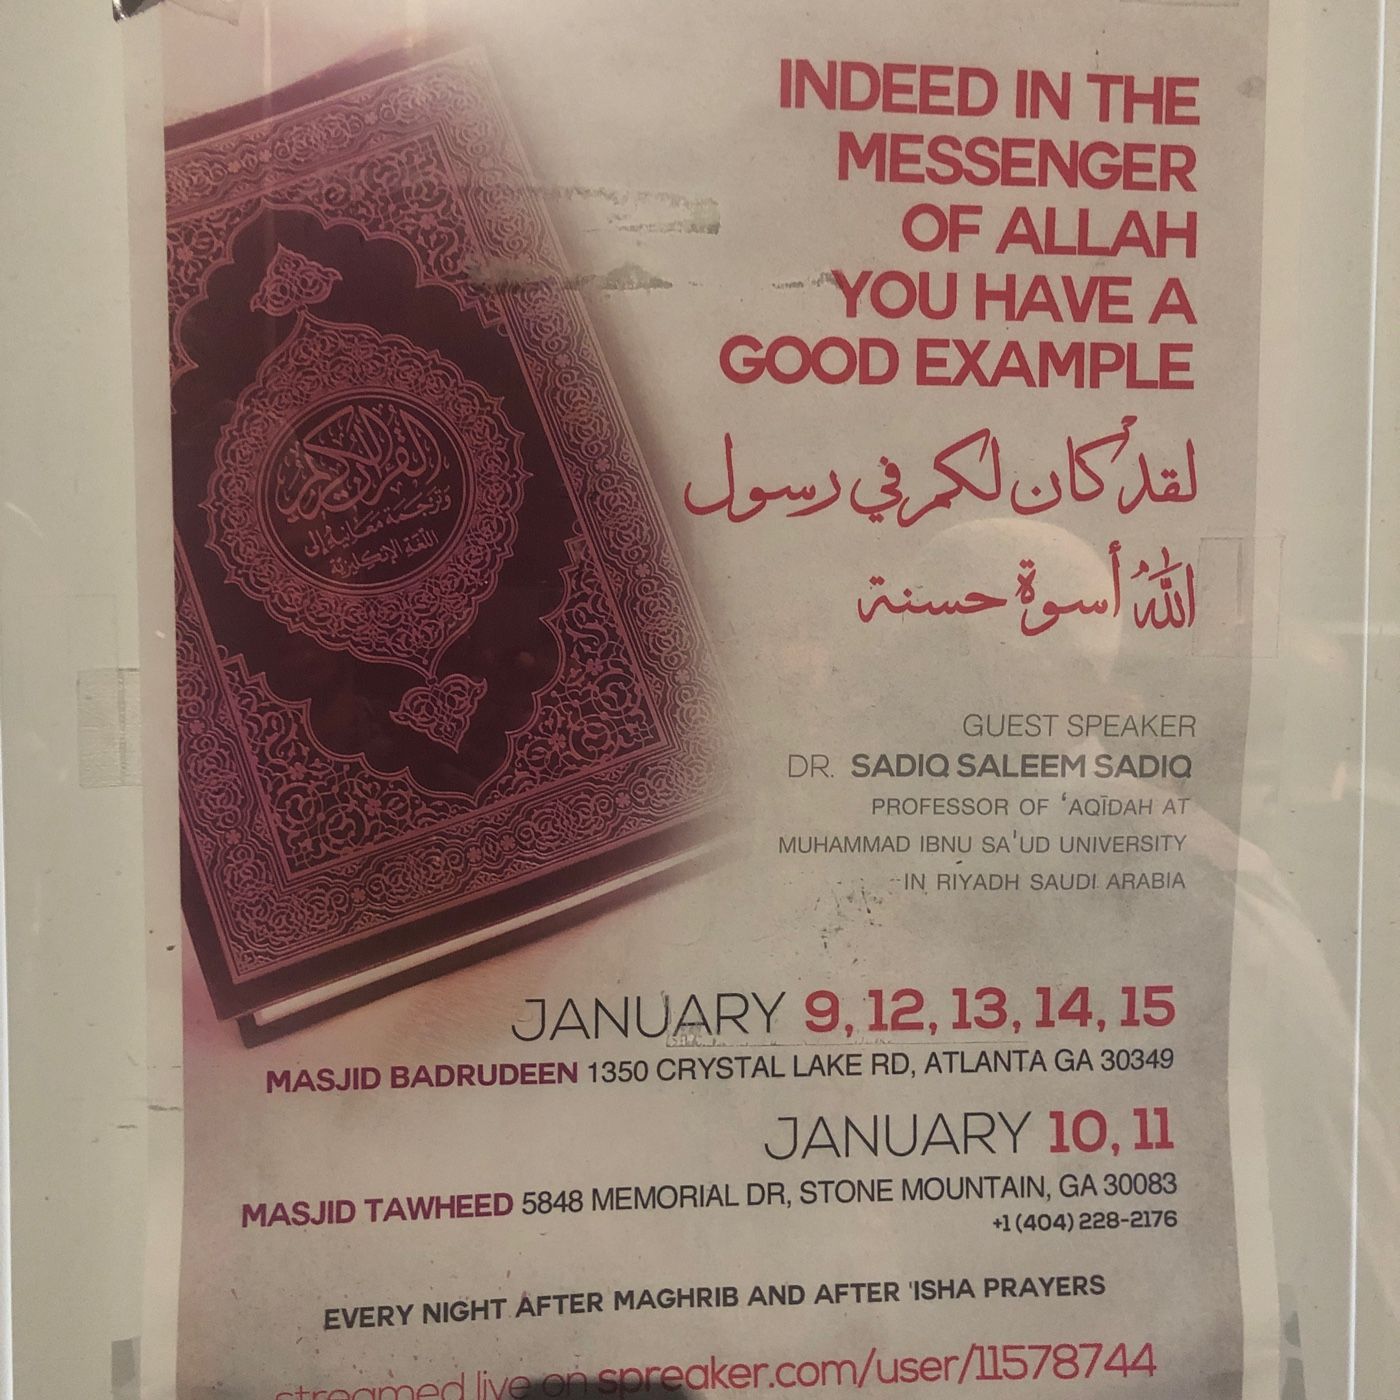 INDEED IN THE
MESSENGER
OF ALLAH
YOU HAVE A
GOOD EXAMPLE
لقد كان لكم في رسول
اللهُ أسوة حسنة
القرآن الكريم
وترجمة معانيه إلى
اللغة الإنكليزية
GUEST SPEAKER
DR. SADIQ SALEEM SADIQ
PROFESSOR OF ʿAQĪDAH AT
MUHAMMAD IBNU SA'UD UNIVERSITY
IN RIYADH SAUDI ARABIA
JANUARY 9, 12, 13, 14, 15
MASJID BADRUDEEN 1350 CRYSTAL LAKE RD, ATLANTA GA 30349
JANUARY 10, 11
MASJID TAWHEED 5848 MEMORIAL DR, STONE MOUNTAIN, GA 30083
+1 (404) 228-2176
EVERY NIGHT AFTER MAGHRIB AND AFTER 'ISHA PRAYERS
streamed live on spreaker.com/user/11578744